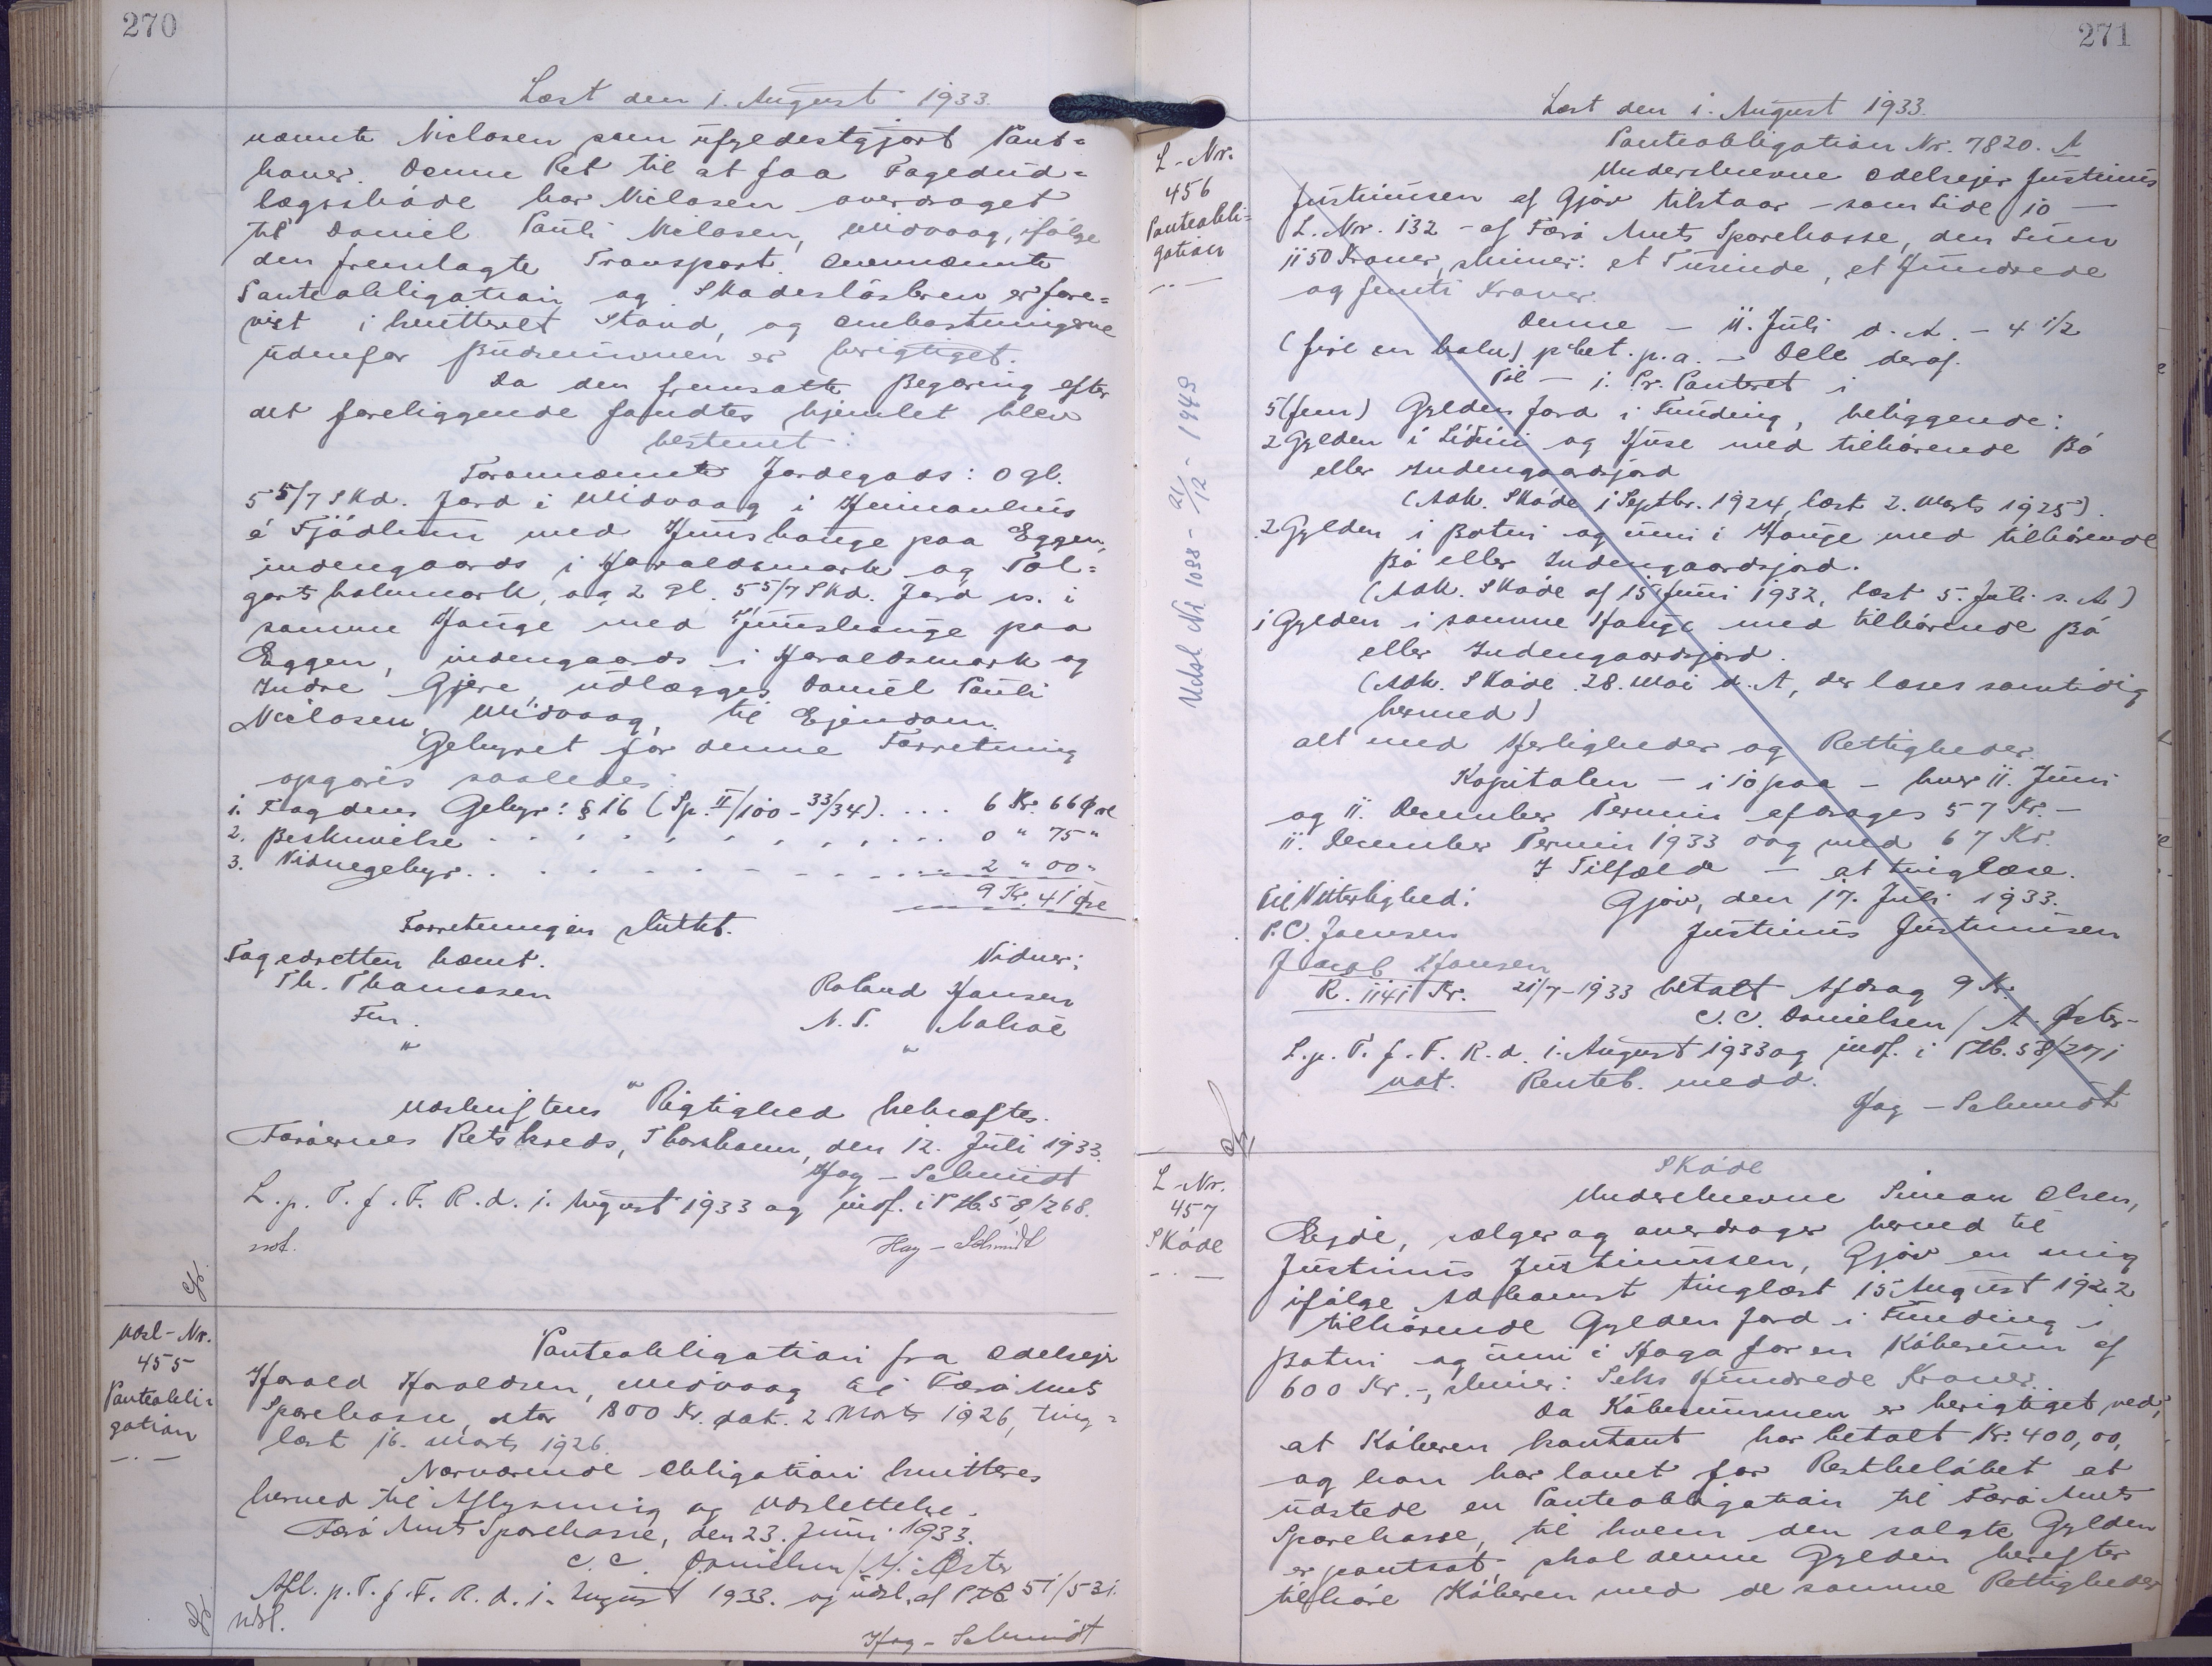 270
Læst den 1. August 1933.
nævnte Niclasen som ufyldestgjort Pant=
haver. Denne Ret til at faa Fogedud=
lægsskøde har Niclasen overdraget
til Daniel Pauli Niclasen, Midvaag, ifølge
den fremlagte Transport. Ovennævnte
Panteobligation og Skadesløsbrev er fore=
vist i kvitteret Stand, og Omkostningerne
udenfor Budsummen er berigtiget.
Da den fremsatte Begæring efter
det foreliggende fandtes hjemlet blev
bestemt:
Forannævnte Jordegods: 0 gl.
5 5/7 Skd. Jord i Midvaag i Heimanhus
á Fjødlum med Huushauge paa Eggen,
indengaards i Haraldsmark og Tol=
garts halvmark, og 2 gl. 5 5/7 Skd. Jord ss. i
samme Hauge med Huushauge paa
Eggen, indengaards i Haraldsmark og
Indre Gjære, udlægges Daniel Pauli
Niclasen, Midvaag, til Ejendom.
Gebyret for denne Forretning
opgøres saaledes:
1. Fogdens Gebyr: § 16 (Sp. II/100 - 33/34) . . . . 6 Kr. 66 Øre
2. Beskrivelse . . . . . . . . . . 0 " 75 "
3. Vidnegebyr . . . . . . . . . . 2 " 00 "
9 Kr. 41 Øre
Forretningen sluttet.
Fogedretten hævet.
Vidner:
Th. Thomasen
Roland Hansen
Fm.
N. P. Nolsøe
"
"
"
Udskriftens Rigtighed bekræftes.
Færøernes Retskreds, Thorshavn, den 12. Juli 1933.
Hag-Schmidt
L. p. T. f. F. R. d. 1. August 1933 og indf. i Ptb. 58/268.
not.
Hag-Schmidt
Udsl-Nr.
455
Panteobli=
gation
Panteobligation fra Odelsejer
Harald Haraldsen, Midvaag til Færø Amts
Sparekasse, stor 800 Kr. dat. 2. Marts 1926, ting=
læst 16. Marts 1926.
Nærværende Obligation kvitteres
herved til Aflysning og Udslettelse.
Færø Amts Sparekasse, den 23. Juni 1933.
C. C. Danielsen / A. Øster
Afl. p. T. f. F. R. d. 1. August 1933. og udsl. af Ptb 51/531.
Udsl.
Hag-Schmidt
271
Læst den 1. August 1933.
L-Nr.
456
Panteobli=
gation
Udsl Nr. 1088 - 21/12 - 1943
Panteobligation Nr. 7820. A
Underskrevne Odelsejer Justinus
Justinussen af Gjóv tilstaar - som Side 10 -
L. Nr. 132 - af Færø Amts Sparekasse, den Sum
1150 Kroner, skriver: et Tusinde, et Hundrede
og femti Kroner.
Denne - 11. Juli d. A. - 4 1/2
(fire en halv) pCt. p. a. - Dele deraf.
Til - 1. Pr. Panteret i
5 (fem) Gylden Jord i Funding, beliggende:
2 Gylden i Lidini og Húse med tilhørende Bø
eller Indengaardsjord
(Adk. Skøde 1 Septbr. 1924, læst 2. Marts 1925).
2 Gylden i Botni og uni i Hauge med tilhørende
Bø eller Indengaardsjord.
(Adk. Skøde af 15 Juni 1932, læst 5. Juli s. A.)
1 Gylden i samme Hauge med tilhørende Bø
eller Indengaardsjord.
(Adk. Skøde 28. Mai d. A, der læses samtidig
hermed)
alt med Herligheder og Rettigheder.
Kapitalen - i 10 paa - hver 11. Juni
og 11. December Termin afdrages 57 Kr. -
11. December Termin 1933 dog med 67 Kr.
I Tilfælde - at tinglæse.
Til Vitterlighed:
Gjov, den 17. Juli 1933.
P. C. Joensen
Justinus Justinussen
Jacob Hansen
R. 1141 Kr. 21/7-1933 betalt Afdrag 9 Kr.
C. C. Danielsen / A. Øster-
L. p. T. f. F. R. d. 1. August 1933 og indf. i Ptb. 58/271
not. Renteb. medd.
Hag-Schmidt
L-Nr.
457
Skøde
Skøde
Underskrevne Simon Olsen,
Ejde, sælger og overdrager herved til
Justinus Justinussen, Gjóv en mig
ifølge Adkomst tinglæst 15 August 1922
tilhørende Gylden Jord i Funding i
Botni og uni i Haga for en Købesum af
600 Kr. -, skriver: Seks Hundrede Kroner.
Da Købesummen er berigtiget ved,
at Køberen kontant har betalt Kr. 400,00,
og han har lovet for Restbeløbet at
udstede en Panteobligation til Færø Amts
Sparekasse, til hvem den solgte Gylden
er pantsat, skal denne Gylden herefter
tilhøre Køberen med de samme Rettigheder